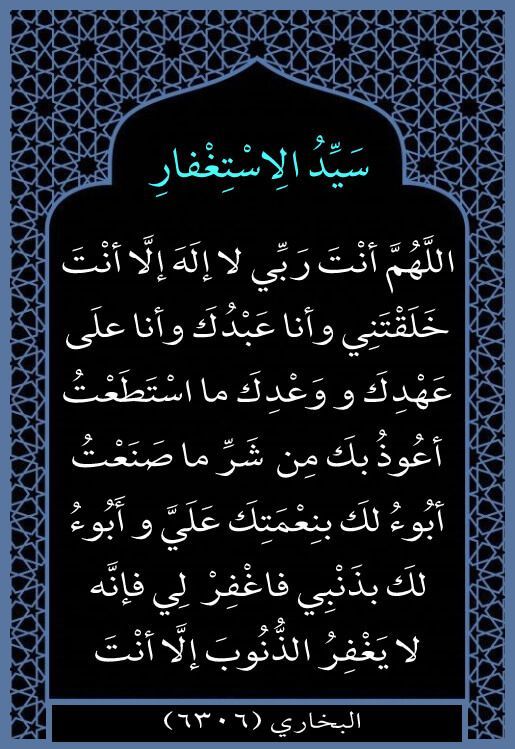 سَيِّدُ الِاسْتِغْفارِ
اللَّهُمَّ أنْتَ رَبِّي لا إلَهَ إلَّا أنْتَ
خَلَقْتَنِي وأنا عَبْدُكَ وأنا علَى
عَهْدِكَ و وَعْدِكَ ما اسْتَطَعْتُ
أعُوذُ بكَ مِن شَرِّ ما صَنَعْتُ
أبُوءُ لكَ بنِعْمَتِكَ عَلَيَّ و أَبُوءُ
لكَ بذَنْبِي فاغْفِرْ لِي فإنَّه
لا يَغْفِرُ الذُّنُوبَ إلَّا أنْتَ
البخاري (٦٣٠٦)